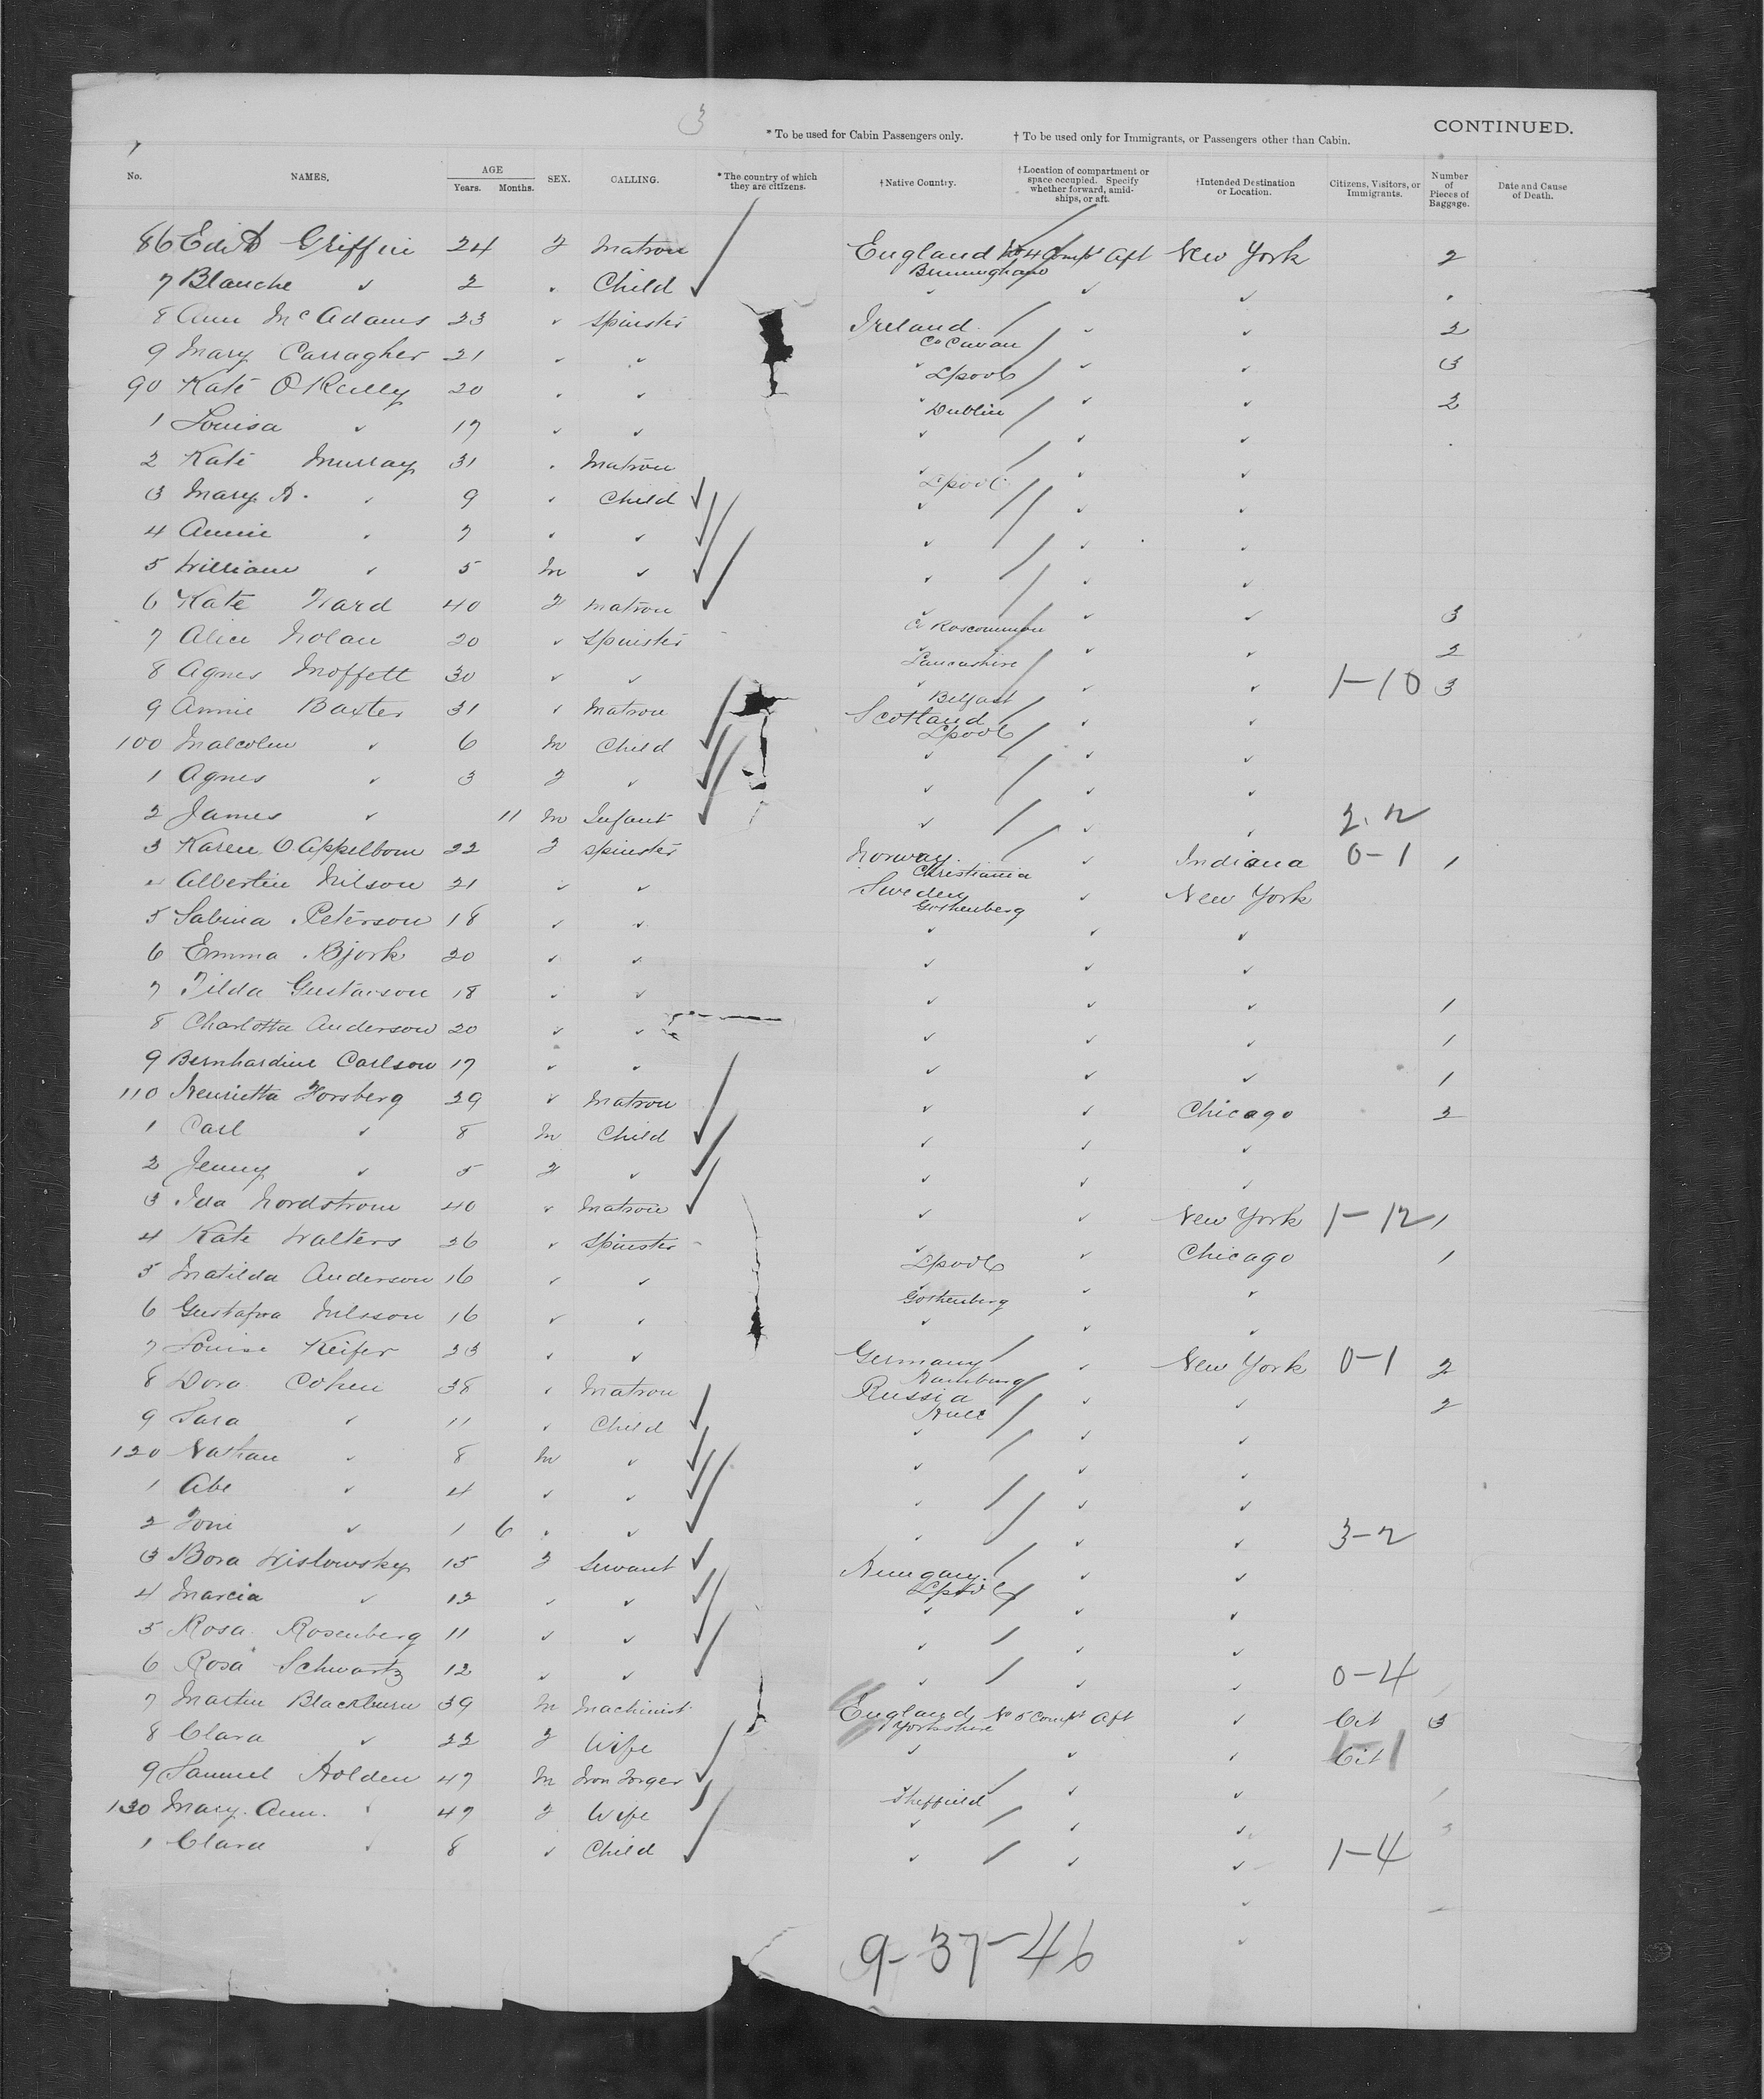 3
* To be used for Cabin Passengers only. † To be used only for Immigrants, or Passengers other than Cabin. CONTINUED.
No. NAMES. AGE Years. Months. SEX. CALLING. * The country of which they are citizens. † Native Country. † Location of compartment or space occupied. Specify whether forward, amidships, or aft. † Intended Destination or Location. Citizens, Visitors, or Immigrants. Number of Pieces of Baggage. Date and Cause of Death.
86 Edith Griffin 24 F Matron England Birmingham No 4 Compt Aft New York 2
7 Blanche ✓ 2 Child ✓
8 Ann McAdams 23 ✓ Spinster Ireland Co Cavan ✓ ✓ 2
9 Mary Carragher 21 ✓ ✓ ✓ Lpool ✓ ✓ 3
90 Kate O'Reilly 20 ✓ ✓ ✓ Dublin ✓ ✓ 2
1 Louisa ✓ 17 ✓ ✓ ✓ ✓ ✓
2 Kate Murray 31 ✓ Matron ✓ Lpool ✓ ✓
3 Mary A. ✓ 9 ✓ Child ✓ ✓ ✓ ✓
4 Annie ✓ 7 ✓ ✓ ✓ ✓ ✓
5 William ✓ 5 M ✓ ✓ ✓ ✓
6 Kate Ward 40 F Matron ✓ Co Roscommon ✓ ✓ 3
7 Alice Nolan 20 ✓ Spinster ✓ Lancashire ✓ ✓ 2
8 Agnes Moffett 30 ✓ ✓ ✓ Belfast ✓ ✓ 1-10 3
9 Annie Baxter 31 ✓ Matron Scotland Lpool ✓ ✓
100 Malcolm ✓ 6 M Child ✓ ✓ ✓ ✓
1 Agnes ✓ 3 F ✓ ✓ ✓ ✓
2 James ✓ 11 M Infant ✓ ✓ ✓ ✓ 2.2
3 Karen O Appelbom 22 F Spinster Norway Christiania ✓ Indiana 0-1 1
4 Albertin Nilson 21 ✓ ✓ Sweden Gothenberg ✓ New York
5 Sabina Peterson 18 ✓ ✓ ✓ ✓ ✓
6 Emma Bjork 20 ✓ ✓ ✓ ✓ ✓
7 Tilda Gustavson 18 ✓ ✓ ✓ ✓ ✓ 1
8 Charlotta Anderson 20 ✓ ✓ ✓ ✓ ✓ 1
9 Bernhardine Carlson 17 ✓ ✓ ✓ ✓ ✓ 1
110 Henrietta Forsberg 29 ✓ Matron ✓ ✓ Chicago 2
1 Carl ✓ 8 M Child ✓ ✓ ✓ ✓
2 Jenny ✓ 5 F ✓ ✓ ✓ ✓ ✓
3 Ida Nordstrom 40 ✓ Matron ✓ ✓ ✓ New York 1-12 1
4 Kate Walters 26 ✓ Spinster ✓ Lpool ✓ Chicago 1
5 Matilda Anderson 16 ✓ ✓ ✓ Gothenberg ✓ ✓
6 Gustafva Nilsson 16 ✓ ✓ ✓ ✓ ✓
7 Louise Keifer 23 ✓ ✓ Germany Hamburg ✓ New York 0-1 2
8 Dora Cohen 38 ✓ Matron Russia Hull ✓ ✓ 2
9 Sara ✓ 11 ✓ Child ✓ ✓ ✓ ✓
120 Nathan ✓ 8 M ✓ ✓ ✓ ✓ ✓
1 Abe ✓ 4 ✓ ✓ ✓ ✓ ✓ ✓
2 Toni ✓ 1 6 ✓ ✓ ✓ ✓ ✓ ✓ 3-2
3 Bora Wislowsky 15 F Servant ✓ Hungary Lpool ✓ ✓
4 Marcia ✓ 12 ✓ ✓ ✓ ✓ ✓ ✓
5 Rosa Rosenberg 11 ✓ ✓ ✓ ✓ ✓ ✓
6 Rosa Schwartz 12 ✓ ✓ ✓ ✓ ✓ 0-4
7 Martin Blackburn 39 M Machinist England Yorkshire No 5 Compt Aft ✓ Cit 3
8 Clara ✓ 22 F Wife ✓ ✓ ✓ Cit 1
9 Samuel Holden 47 M Iron Forger ✓ Sheffield ✓ ✓
130 Mary Ann ✓ 47 F Wife ✓ ✓ ✓
1 Clara ✓ 8 ✓ Child ✓ ✓ ✓ ✓ 1-4
9-37-46